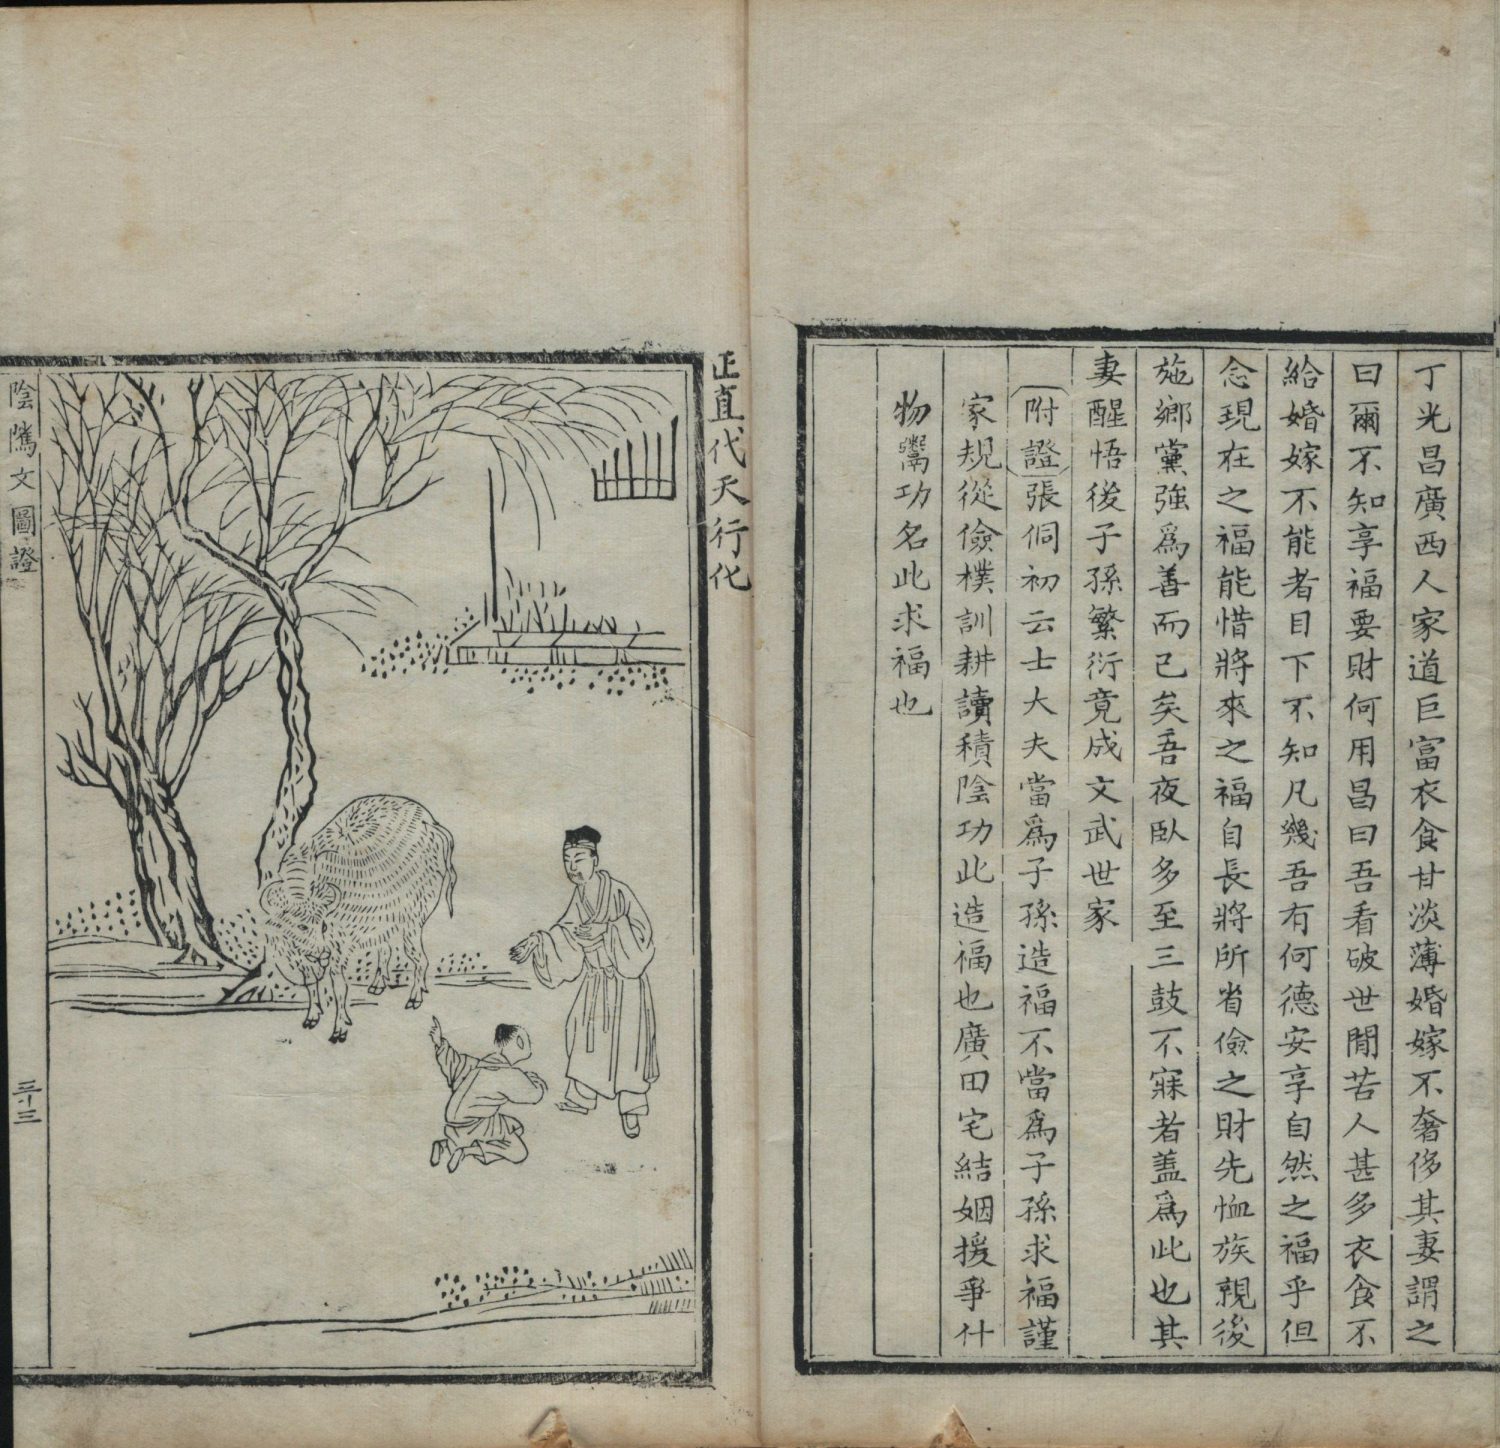 丁光昌廣西人家道巨富衣食甘淡薄婚嫁不奢侈其妻謂之
曰爾不知享福要財何用昌曰吾看破世間苦人甚多衣食不
給婚嫁不能者目下不知凡幾吾有何德安享自然之福乎但
念現在之福能惜將來之福自長將所省儉之財先恤族親後
施鄉黨強爲善而已矣吾夜臥多至三鼓不寐者蓋爲此也其
妻醒悟後子孫繁衍竟成文武世家
附證張侗初云士大夫當爲子孫造福不當爲子孫求福謹
家規從儉樸訓耕讀積陰功此造福也廣田宅結姻援爭什
物鬻功名此求福也
正直代天行化
陰騭文圖證
三十三